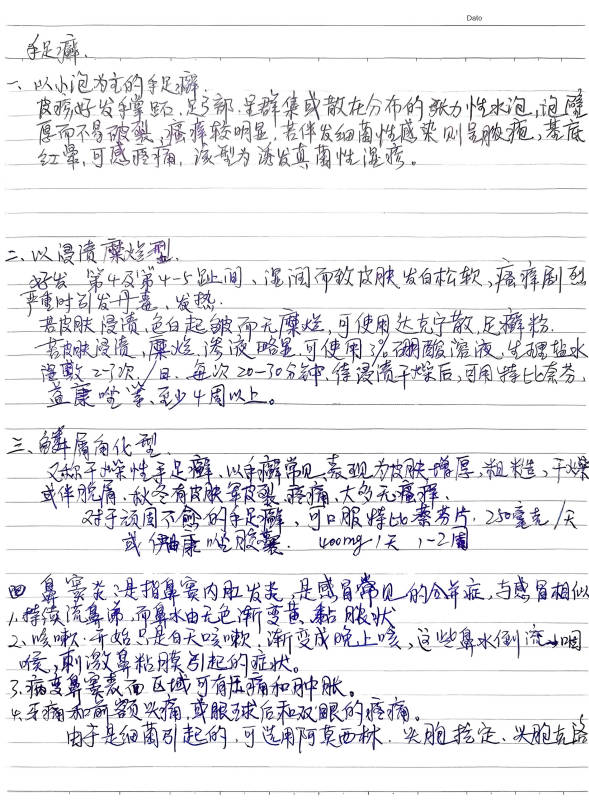 Date
手足癣.
一、以小泡为主的手足癣
皮疹好发手掌路,足弓部.呈群集或散在分布的张力性水泡,泡壁
厚而不易破裂,瘙痒较明显.若伴发细菌性感染则呈脓疱,基底
红晕,可感疼痛,该型为诱发真菌性湿疹。
二、以浸渍糜烂型.
好发 第4及第4-5趾间、湿润而致皮肤发白松软、瘙痒剧烈
严重时引发丹毒、发热.
若皮肤浸渍、色白起皱而无糜烂,可使用达克宁散,足癣粉.
若皮肤浸渍,糜烂,渗液略显.可使用3%硼酸溶液,生理盐水
湿敷2-3次/日.每次20-30分钟.待浸渍干燥后,可用特比奈芬,
益康唑等、至少4周以上。
三、鳞屑角化型.
又称干燥性手足癣.以手癣常见,表现为皮肤增厚,粗糙,干燥
或伴脱屑.秋冬有皮肤皲裂、疼痛、大多无瘙痒.
对于顽固不愈的手足癣,可口服特比萘芬片.250毫克/天
或伊曲康唑胶囊. 400mg/天 1-2周
四 鼻窦炎:是指鼻窦内肌发炎,是感冒常见的合并症,与感冒相似
1.持续流鼻涕,而鼻水由无色渐变黄、黏脓状
2.咳嗽:开始只是白天咳嗽,渐变成晚上咳,这些鼻水倒流→咽
喉,刺激鼻粘膜引起的症状。
3.病变鼻窦表面区域可有压痛和肿胀。
4.牙痛和前额头痛,或眼球后和双眼的疼痛。
由于是细菌引起的,可选用阿莫西林.头胞拉定、头胞克洛